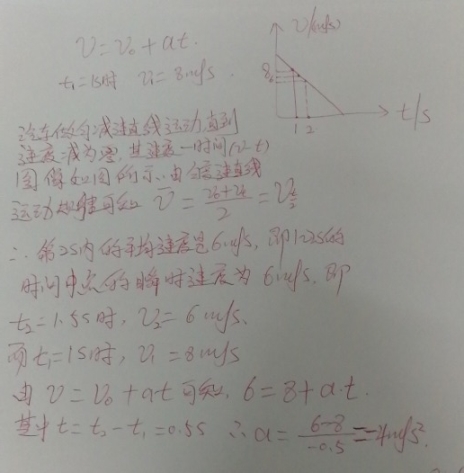 v/(m/s)
v=v₀+at.
t₁=1s时 v₁=8m/s.
8
6
1 2
t/s
汽车做匀减速直线运动,直到
速度减为零,其速度一时间(v-t)
图像如图所示.由匀变速直线
运动规律可知 v̄ = = v
∴第2s内的平均速度是6m/s,即1~2s的
时间中点的瞬时速度为6m/s,即
t₂=1.5s时, v₂=6m/s.
而t₁=1s时, v₁=8m/s
由 v=v₀+at可知, 6=8+a·t.
其中t=t₂-t₁=0.5s ∴a=(6-8)/(-0.5)=-4m/s².